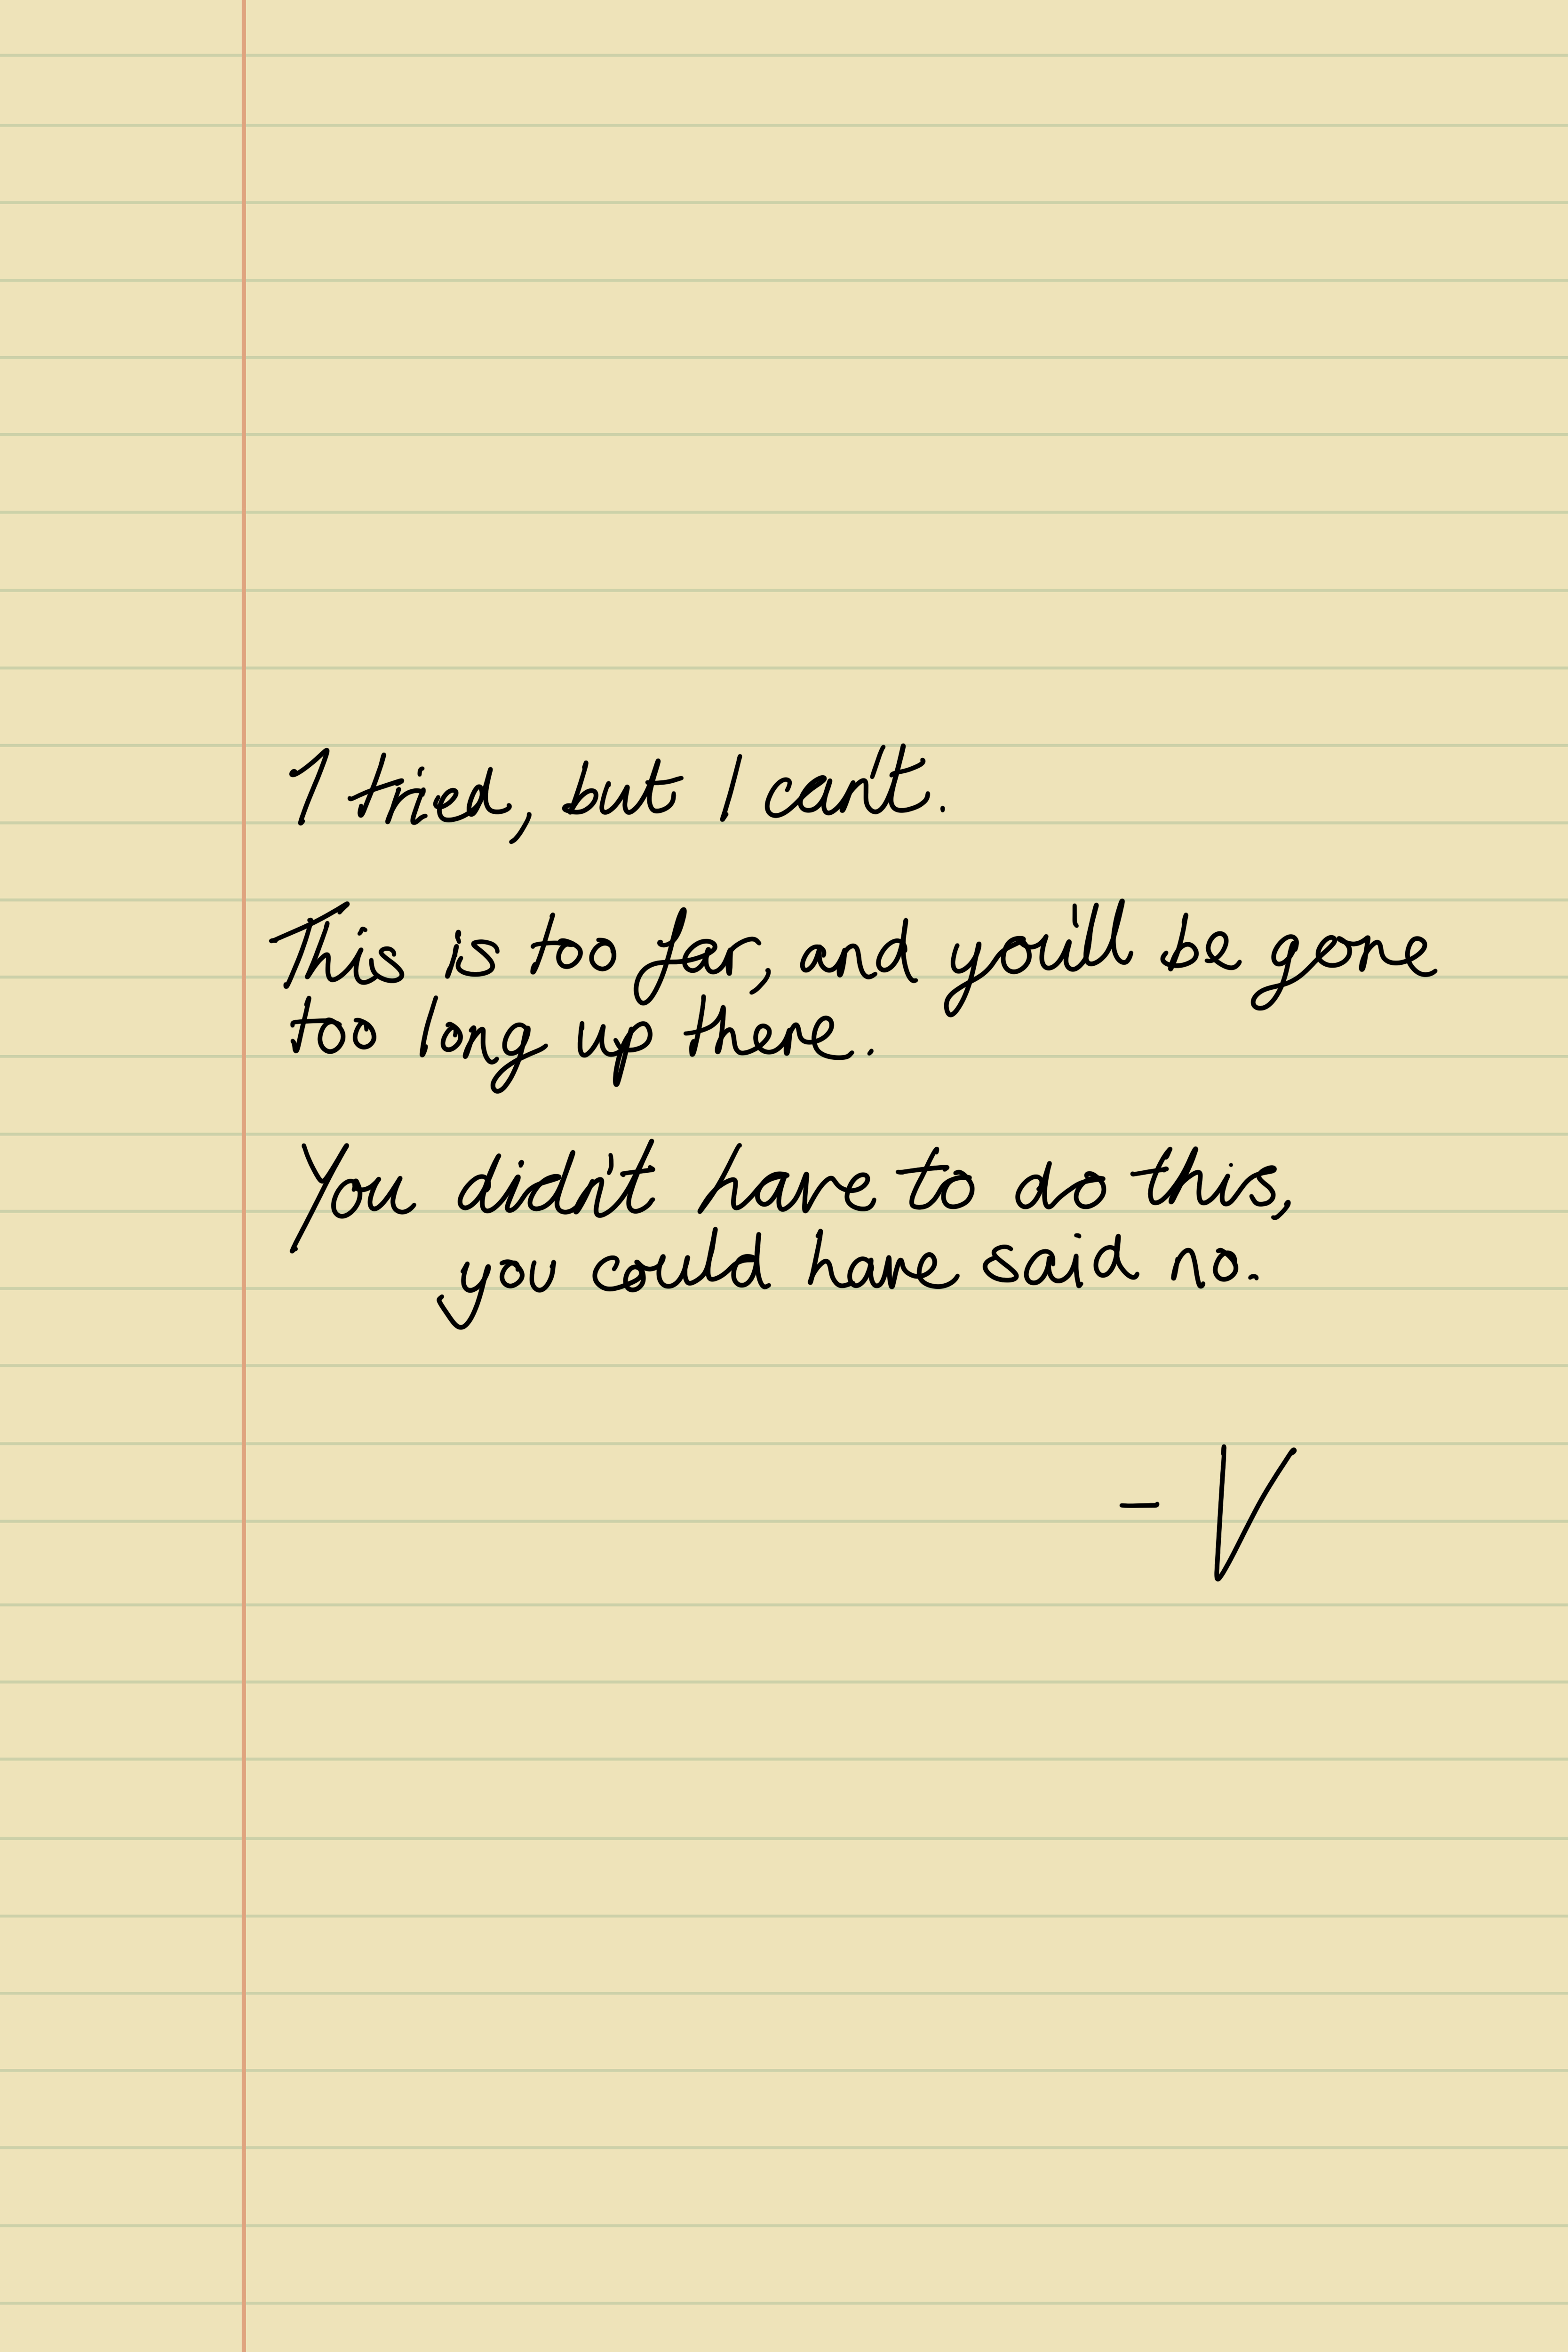 I tried, but I can't.
This is too far, and you'll be gone
too long up there.
You didn't have to do this,
you could have said no.
- V